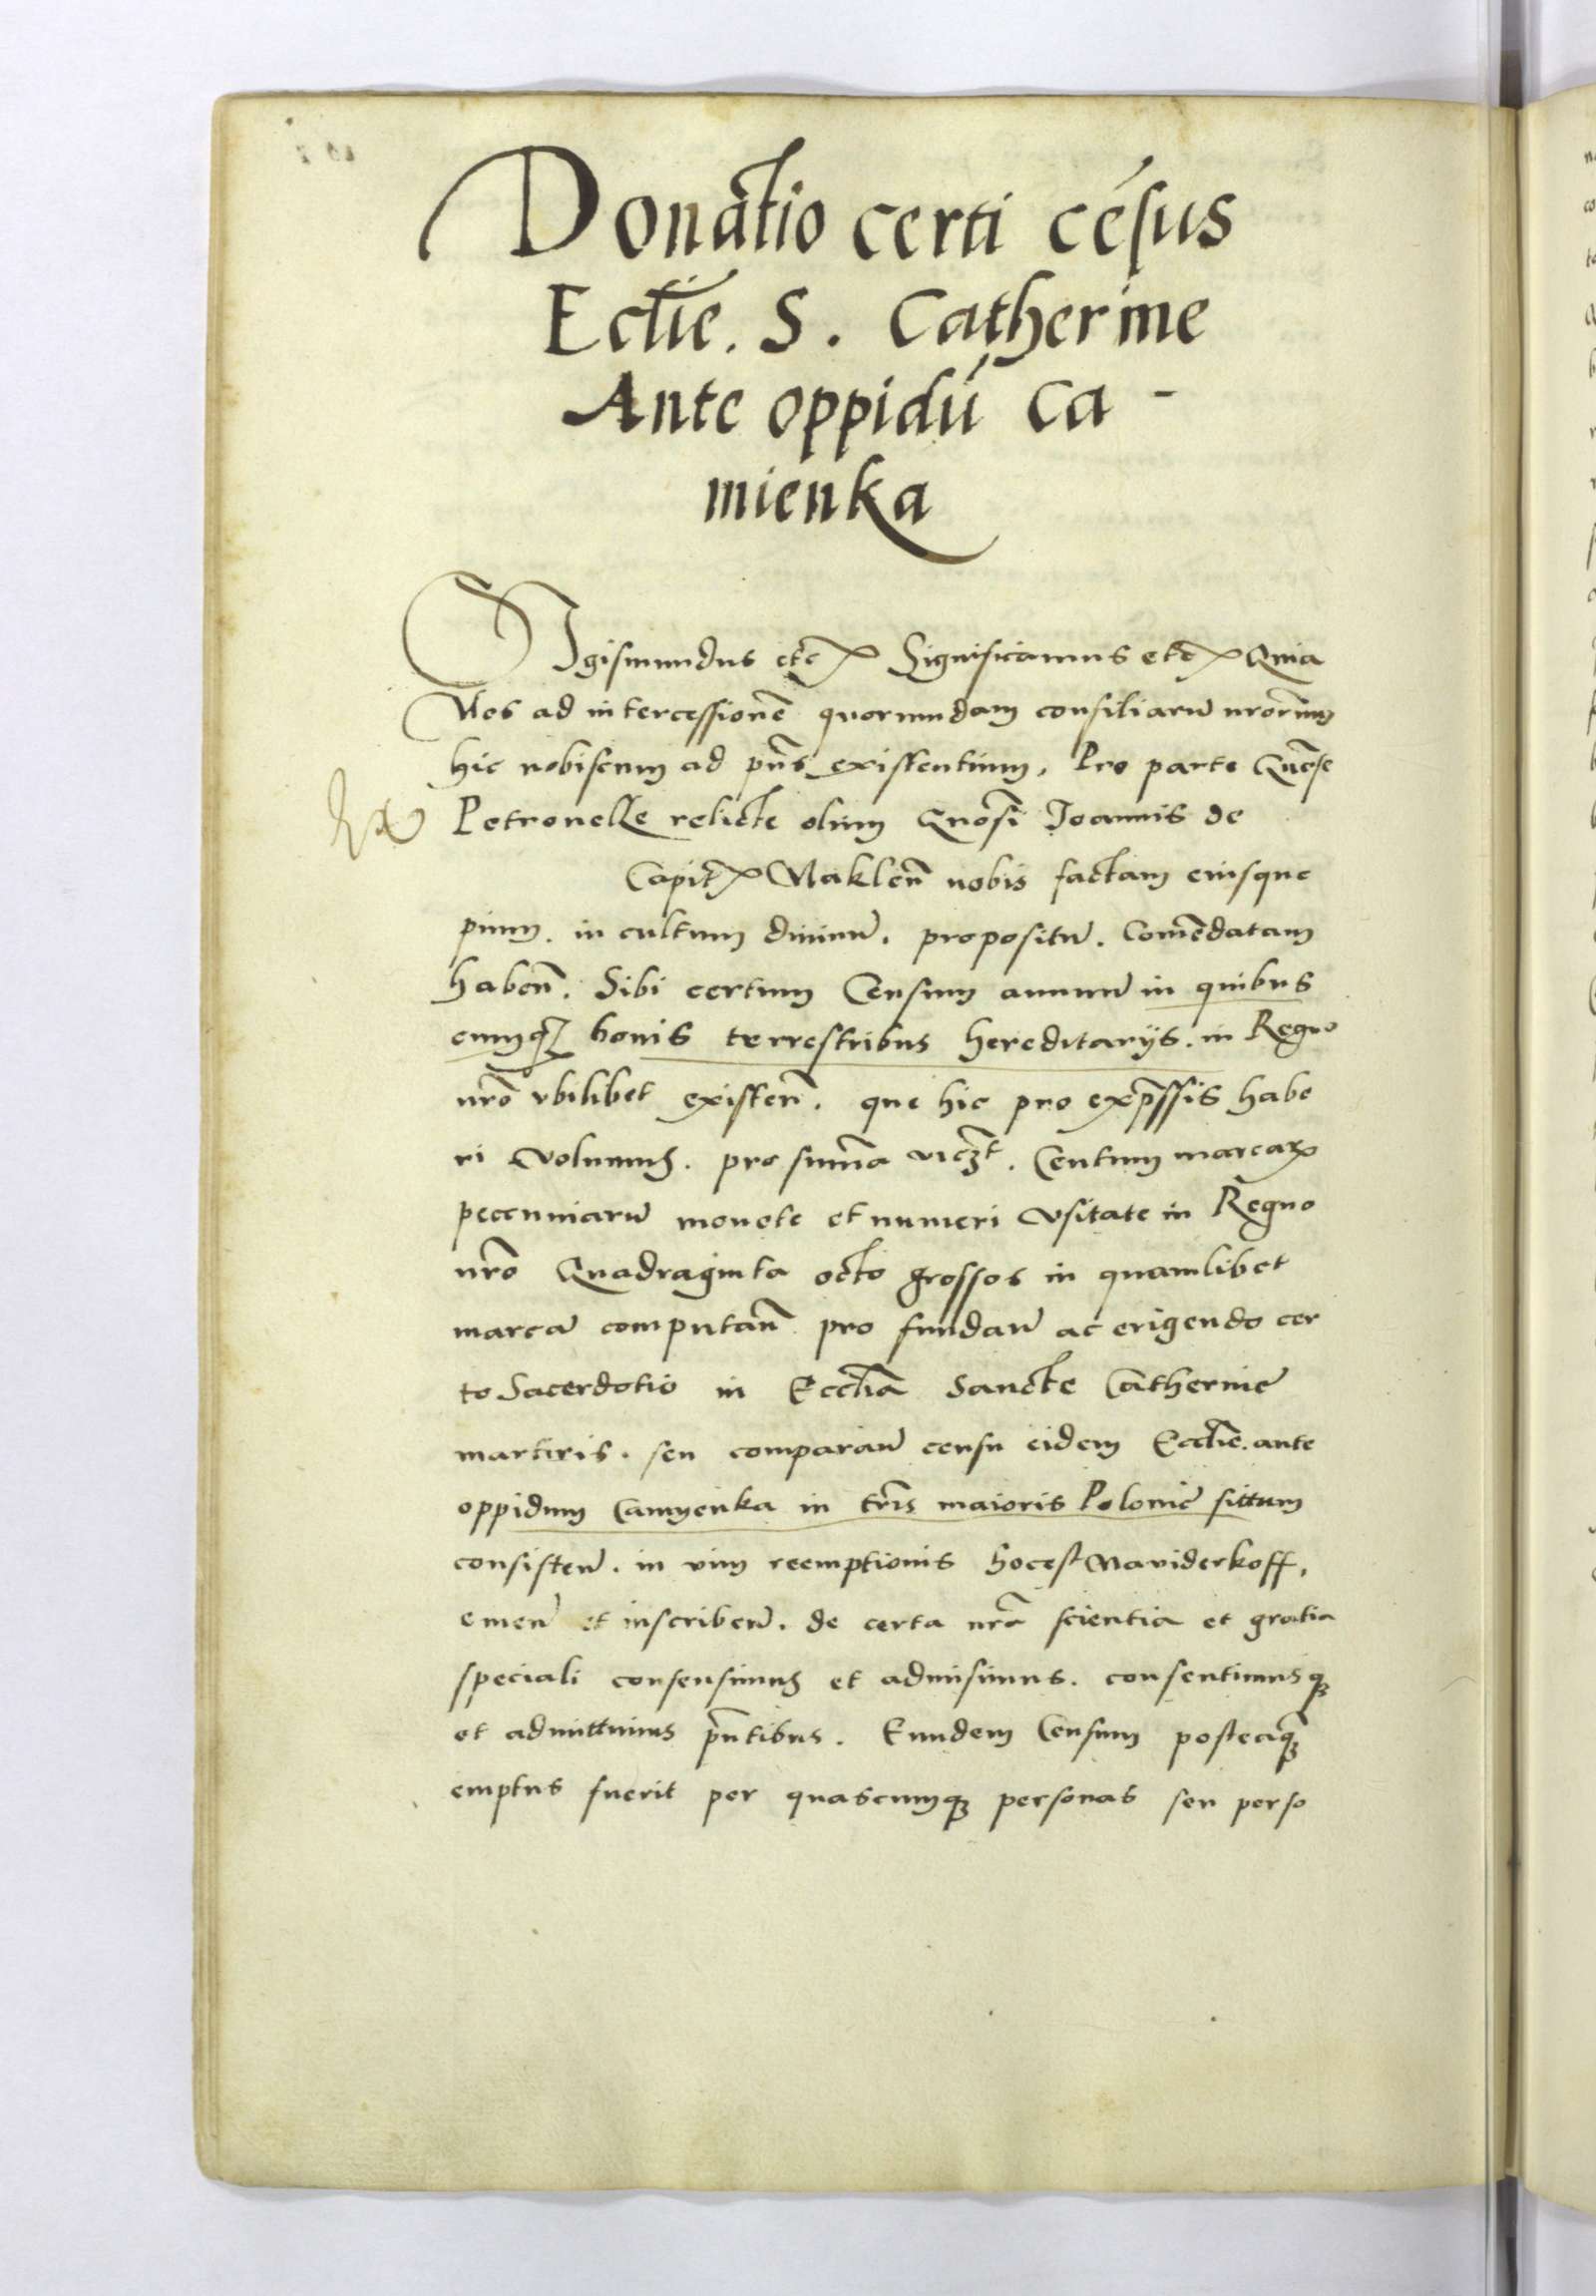 Donatio certi césus
Eccl̄ie. S. Catherine
Ante oppidū Ca-
mienka
Sigismundus etc Significamus etc Quia
Nos ad intercessionē quorumdam consiliariū nr̄orum
hic nobiscum ad pn̄s existentium, Pro parte Gn̄ose
Petronelle relicte olim Gn̄osi Joannis de
Capit Naklen̄ nobis factam eiusque
pium. in cultum diuinū. propositū. Comēdatam
haben̄. Sibi certum Censum annuū in quibus
cumq bonis terrestribus hereditarijs. in Regno
nr̄o vbilibet existen̄. que hic pro exp̄ssis habe
ri volumus. pro sum̄a viczt. Centum marcarꝝ
peccuniarū monete et numeri vsitate in Regno
nr̄o Quadraginta octo grossos in quamlibet
marcā computan̄ pro fundan̄ ac erigendo cer
to Sacerdotio in Eccl̄ia Sancte Catherine
martiris. seu comparan̄ censu eidem Eccl̄ie. ante
oppidum Camyenka in tr̄is maioris Polonie sittum
consisten̄. in vim reemptionis hocest Naviderkoff,
emen̄ et inscriben̄. de certa nr̄a scientia et gratia
speciali consensimus et admisimus. consentimusq
et admittimus pn̄tibus. Eundem Censum posteaq̄
emptus fuerit per quascumq personas seu perso